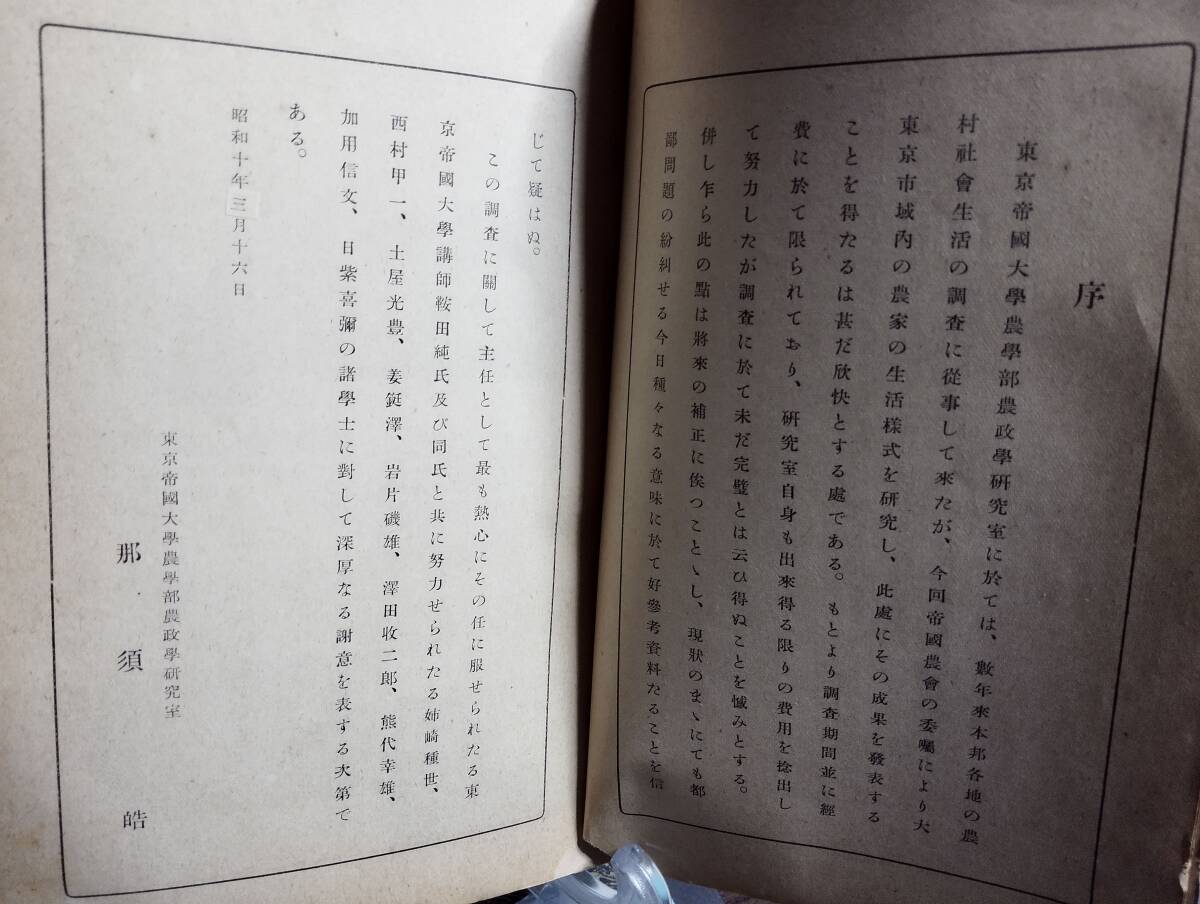 序
東京帝國大學農學部農政學硏究室に於ては、數年來本邦各地の農
村社會生活の調査に從事して來たが、今回帝國農會の委囑により大
東京市域內の農家の生活樣式を硏究し、此處にその成果を發表する
ことを得たるは甚だ欣快とする處である。もとより調査期間並に經
費に於て限られており、硏究室自身も出來得る限りの費用を捻出し
て努力したが調査に於て未だ完璧とは云ひ得ぬことを憾みとする。
併し乍ら此の點は將來の補正に俟つことゝし、現狀のまゝにても都
鄙問題の紛糾せる今日種々なる意味に於て好參考資料たることを信
じて疑はぬ。
この調査に關して主任として最も熱心にその任に服せられたる東
京帝國大學講師鞍田純氏及び同氏と共に努力せられたる姉崎種世、
西村甲一、土屋光豊、姜鋌澤、岩片磯雄、澤田收二郎、熊代幸雄、
加用信文、日紫喜彌の諸學士に對して深厚なる謝意を表する次第で
ある。
昭和十年三月十六日
東京帝國大學農學部農政學硏究室
那須皓